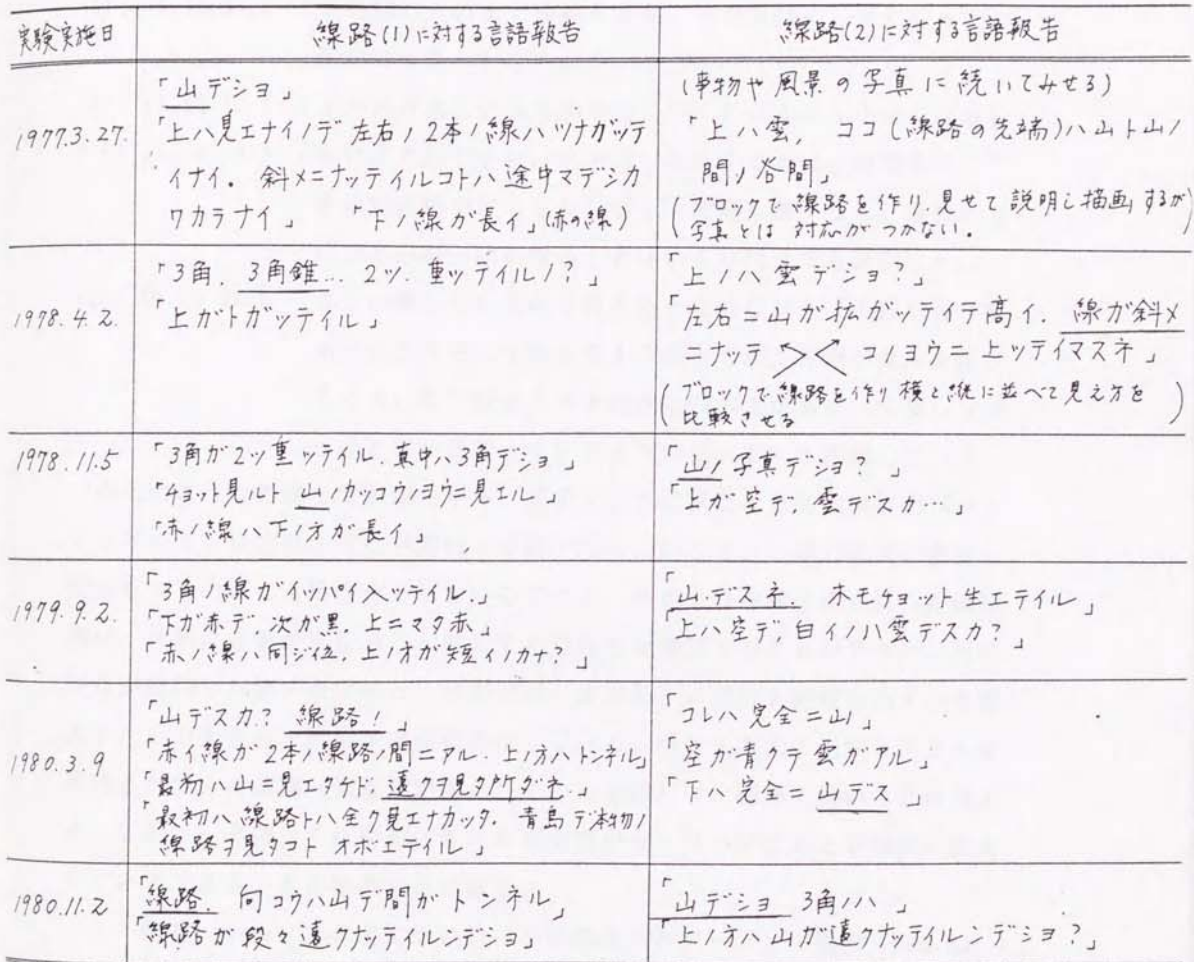 実験実施日
線路(1)に対する言語報告
線路(2)に対する言語報告
1977.3.27.
「山デショ」
「上ハ見エナイノデ 左右ノ2本ノ線ハツナガッテ
イナイ. 斜メニナッテイルコトハ途中マデシカ
ワカラナイ」 「下ノ線ガ長イ」(赤の線)
(事物や風景の写真に続いてみせる)
「上ハ雲, ココ(線路の先端)ハ山ト山ノ
間ノ谷間」
(ブロックで線路を作り.見せて説明し描画するが
写真とは対応がつかない.)
1978.4.2.
「3角. 3角錐... 2ツ. 重ッテイルノ?」
「上ガトガッテイル」
「上ノハ雲デショ?」
「左右ニ山が拡がッテイテ高イ. 線が斜メ
ニナッテ コノヨウニ上ッテイマスネ」
(ブロックで線路を作り横と縦に並べて見え方を
比較させる)
1978.11.5
「3角が2ツ重ッテイル.真中ハ3角デショ」
「チョット見ルト山ノカッコウノヨウニ見エル」
「赤ノ線ハ下ノ方が長イ」
「山ノ写真デショ? 」
「上が空デ, 雲デスカ…」
1979.9.2.
「3角ノ線ガイッパイ入ッテイル.」
「下ガ赤デ.次が黒.上ニマタ赤」
「赤ノ線ハ同ジ位.上ノ方が短イノカナ?」
「山デスネ. 木モチョット生エテイル」
「上ハ空デ,白イノハ雲デスカ?」
1980.3.9
「山デスカ? 線路!」
「赤イ線が2本ノ線路ノ間ニアル.上ノ方ハトンネル」
「最初ハ山ニ見エタケド,遠クヲ見タワケダネ.」
「最初ハ線路トハ全ク見エナカッタ. 青島デ本物ノ
線路ヲ見タコト オボエテイル」
「コレハ完全ニ山」
「空が青クテ雲がアル」
「下ハ完全ニ山デス」
1980.11.2
「線路. 向コウハ山デ間がトンネル」
「線路が段々遠クナッテイルンデショ」
「山デショ 3角ノハ 」
「上ノ方ハ山が遠クナッテイルンデショ?」